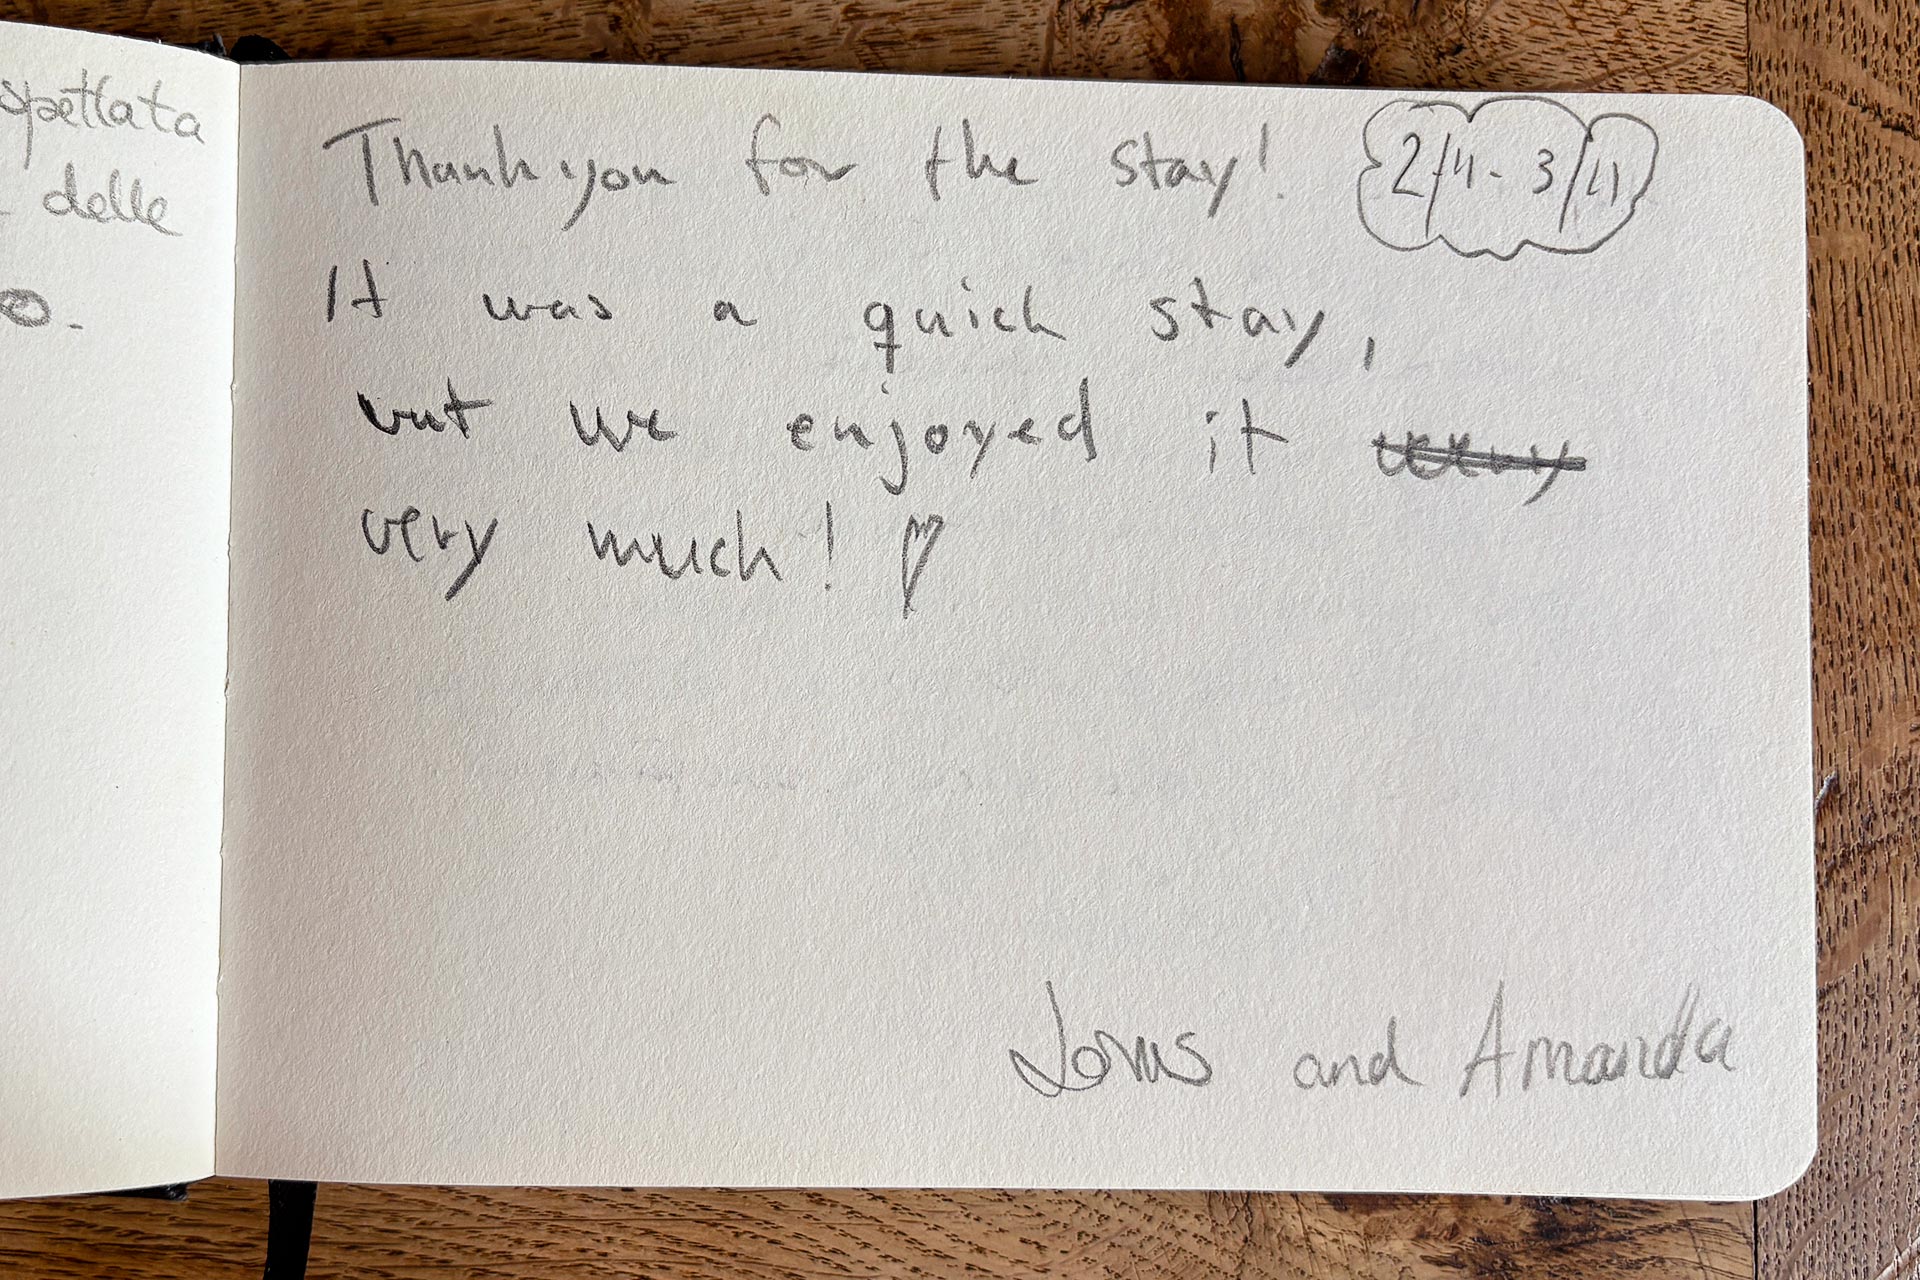 spettata
delle
o.
Thank you for the stay! 2/4 - 3/4
It was a quick stay,
but we enjoyed it
very much! ♡
and Amanda